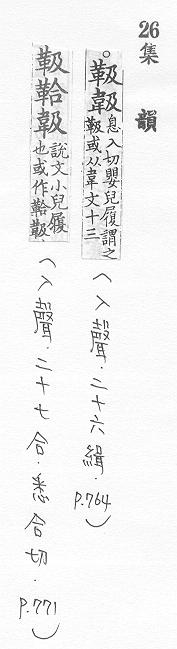 26 集韻
○靸
息入切嬰兒履謂之
靸或从韋文十三
(入聲．二十六緝．P.764)
靸鞈
説文小兒履
也或作鞈
(入聲．二十七合．悉合切．P.771)